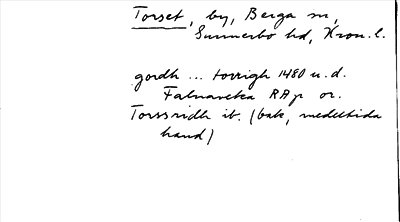 Torset, by, Berga sn,
Sunnerbo hd, Kron. l.
gordh ... torrigh 1480 u. d.
Falnaveka RAp or.
Torssridh ib. (bak, medeltida
hand)